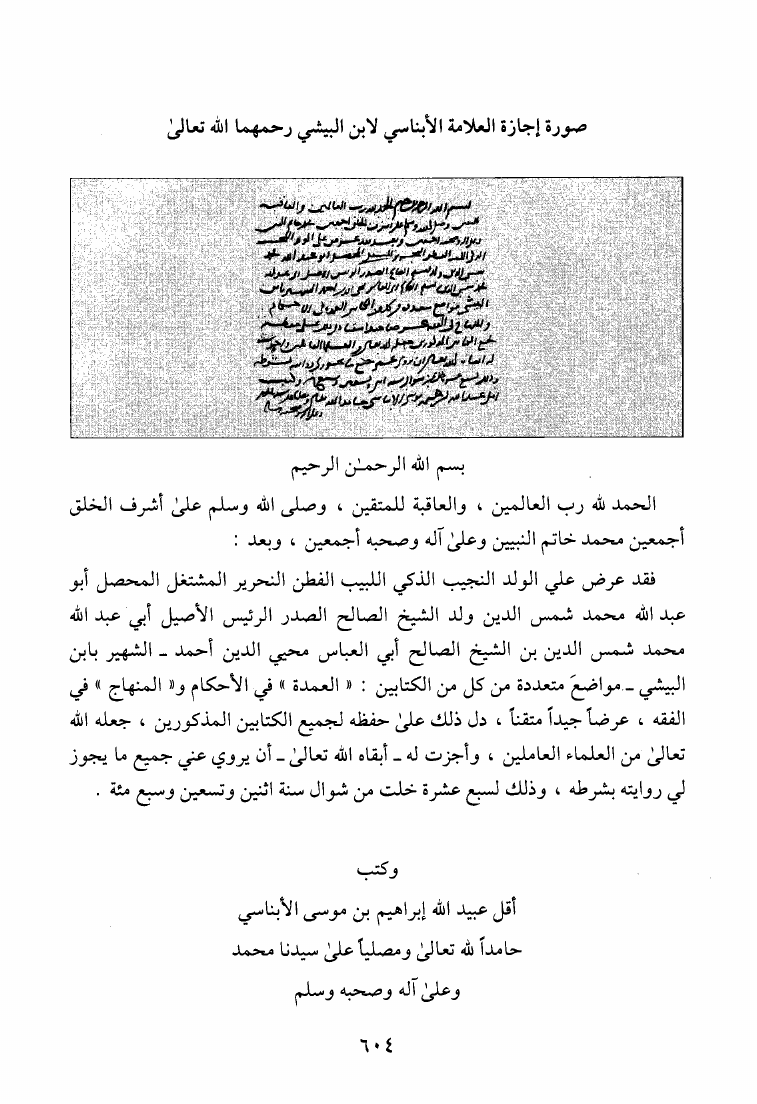 صورة إجازة العلامة الأبناسي لابن البيشي رحمهما الله تعالىٰ
بسم الله الرحمـٰن الرحيم
الحمد لله رب العالمين ، والعاقبة للمتقين ، وصلى الله وسلم علىٰ أشرف الخلق
أجمعين محمد خاتم النبيين وعلىٰ آله وصحبه أجمعين ، وبعد :
فقد عرض علي الولد النجيب الذكي اللبيب الفطن النحرير المشتغل المحصل أبو
عبد الله محمد شمس الدين ولد الشيخ الصالح الصدر الرئيس الأصيل أبي عبد الله
محمد شمس الدين بن الشيخ الصالح أبي العباس محيي الدين أحمد ـ الشهير بابن
البيشي ـ مواضعَ متعددة من كل من الكتابين : « العمدة » في الأحكام و« المنهاج » في
الفقه ، عرضاً جيداً متقناً ، دل ذلك علىٰ حفظه لجميع الكتابين المذكورين ، جعله الله
تعالىٰ من العلماء العاملين ، وأجزت له ـ أبقاه الله تعالىٰ ـ أن يروي عني جميع ما يجوز
لي روايته بشرطه ، وذلك لسبع عشرة خلت من شوال سنة اثنين وتسعين وسبع مئة .
وكتب
أقل عبيد الله إبراهيم بن موسى الأبناسي
حامداً لله تعالىٰ ومصلياً علىٰ سيدنا محمد
وعلىٰ آله وصحبه وسلم
٦٠٤